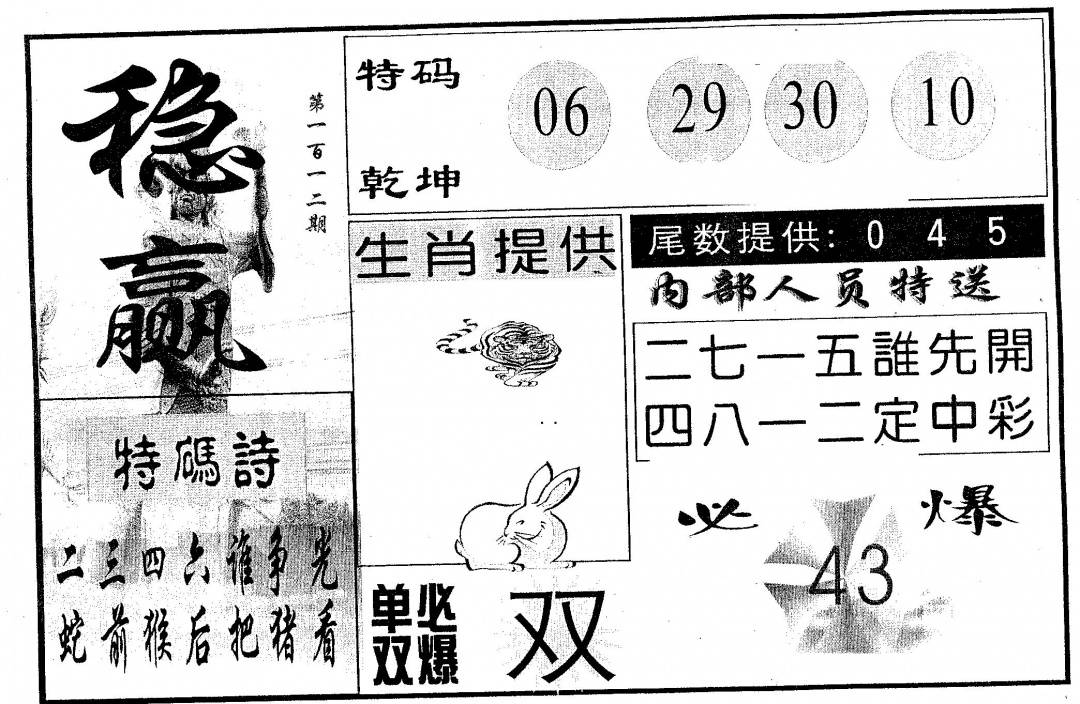 稳赢
第一百一十二期
特码
乾坤
06 29 30 10
生肖提供
尾数提供: 0 4 5
内部人员特送
二七一五誰先開
四八一二定中彩
特碼詩
二三四六谁争光
蛇前猴后把猪看
单双
必爆
双
必爆
43